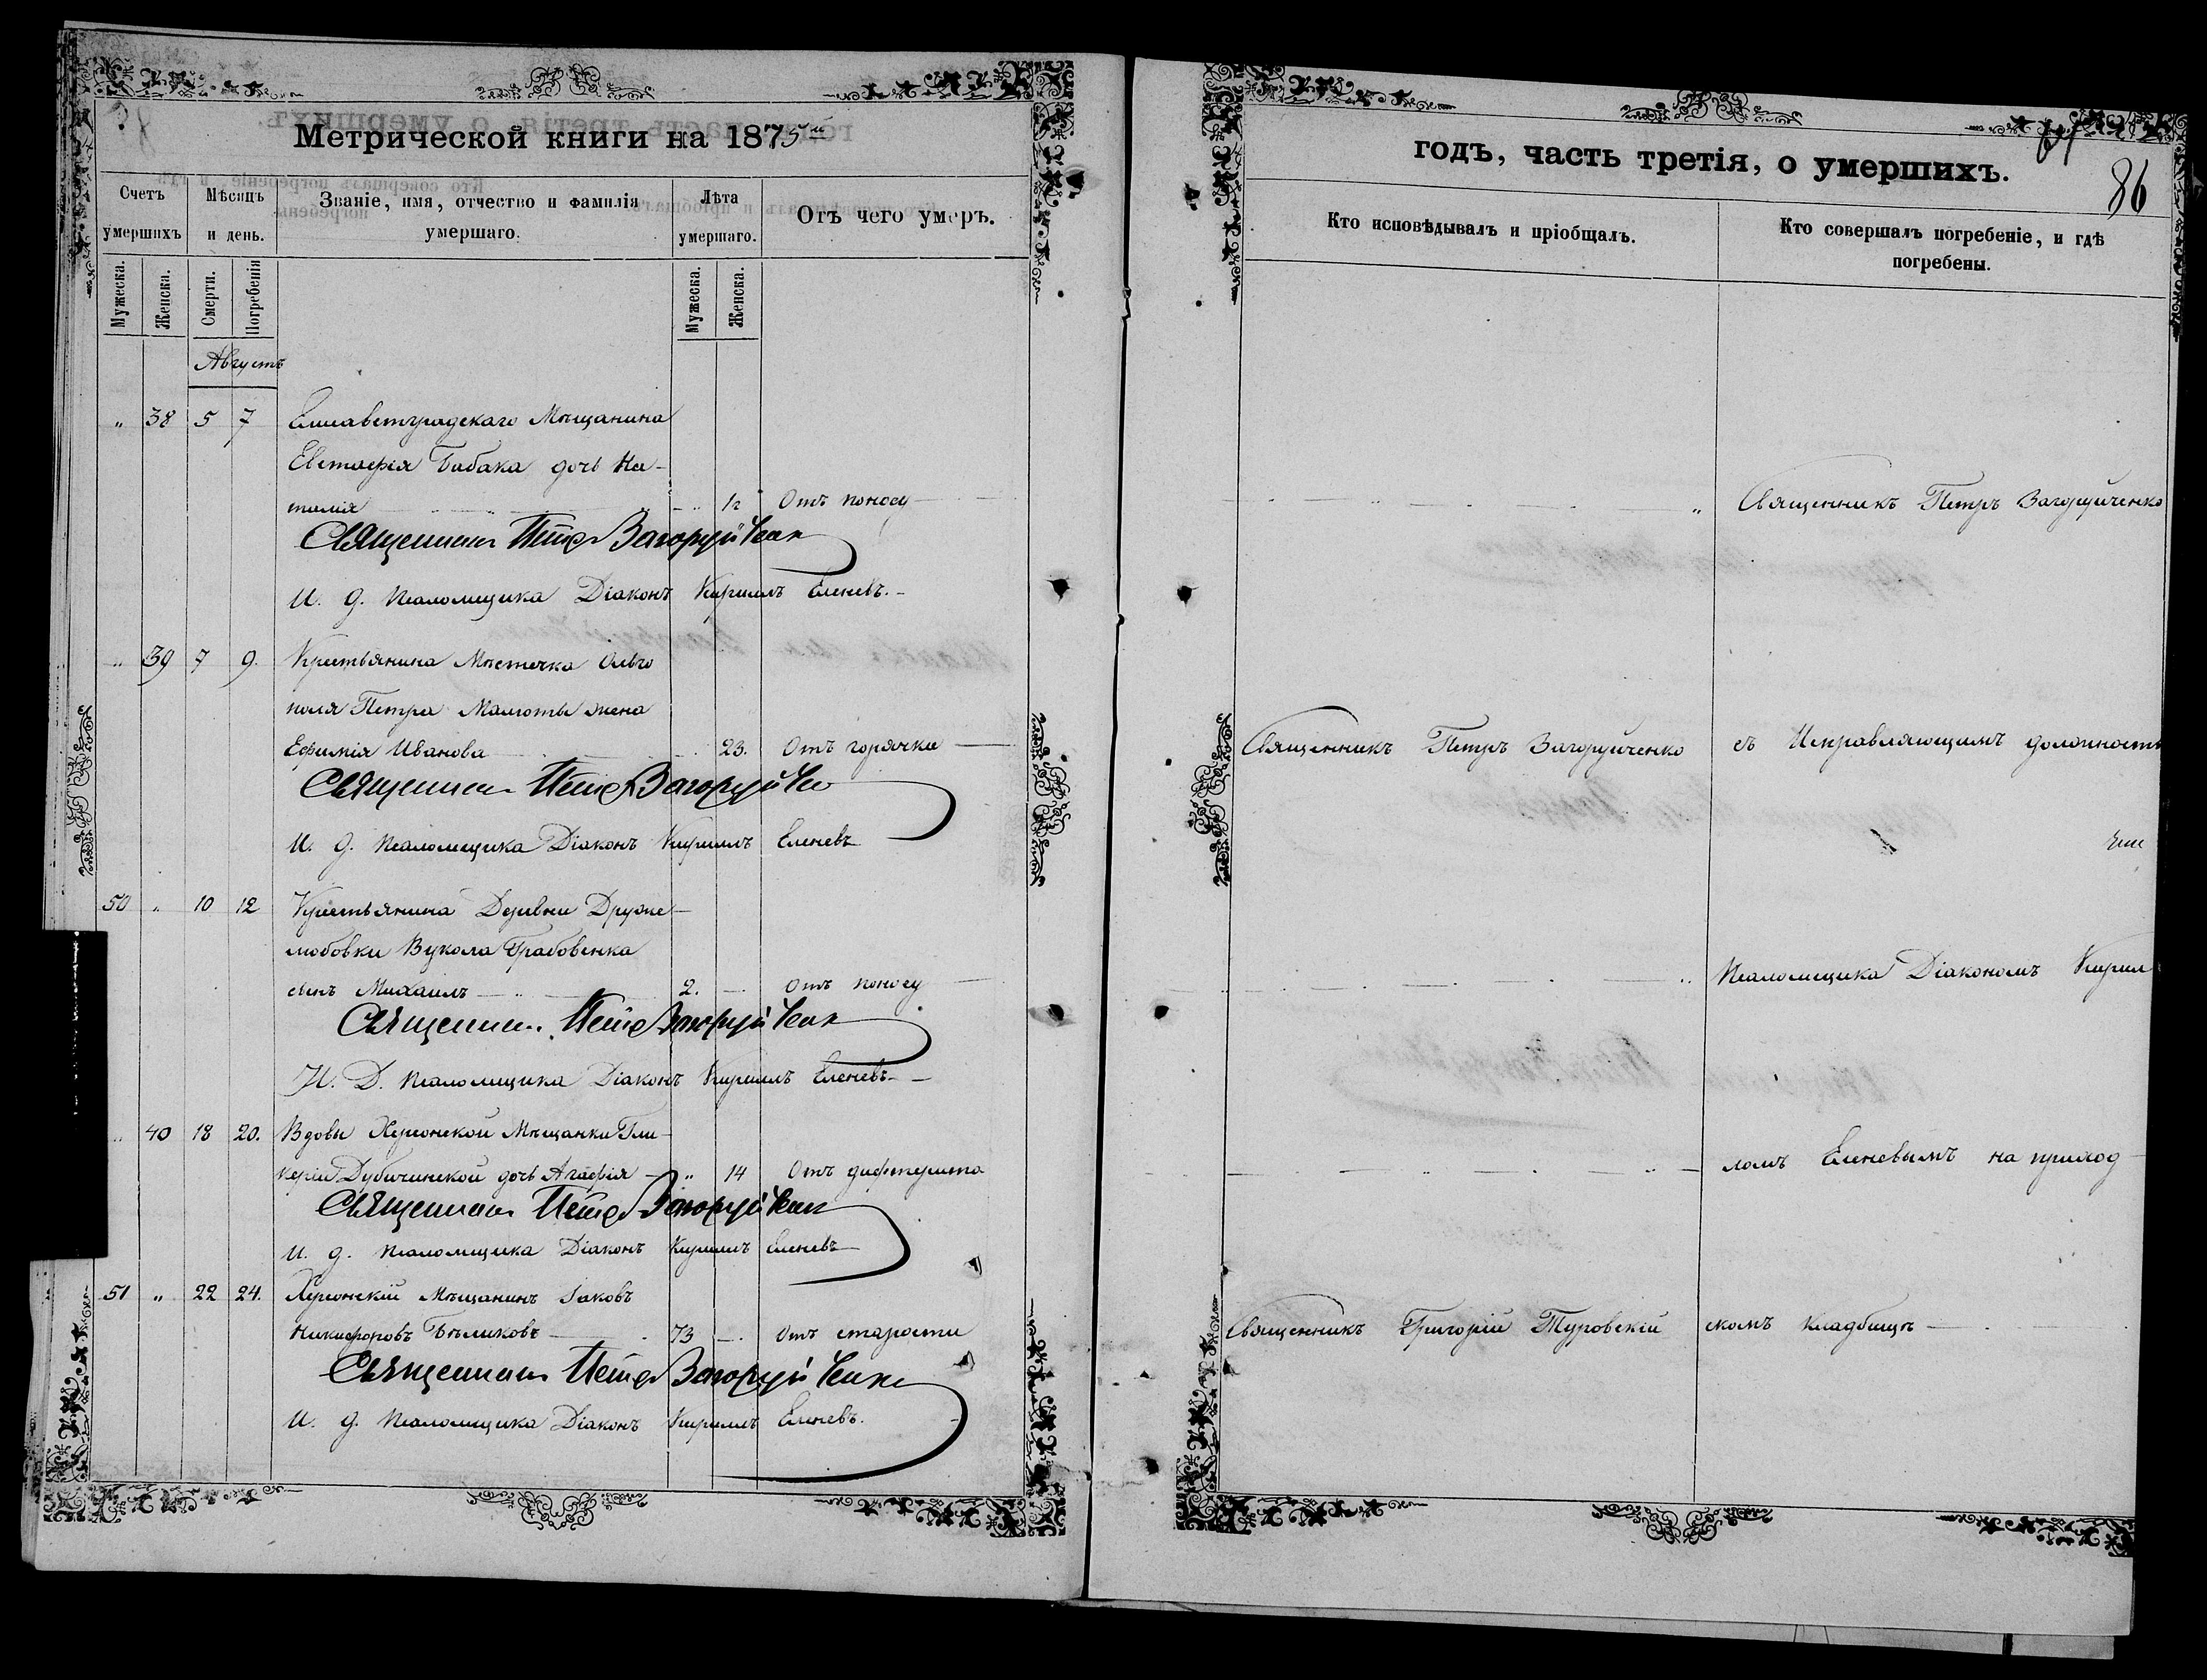 Метрической книги на 1875й
Счетъ умершихъ
Мѣсяцъ и день.
Званіе, имя, отчество и фамилія умершаго.
Лѣта умершаго.
Отъ чего умеръ.
Мужеска.
Женска.
Смерти.
Погребенія
Мужеска.
Женска.
Августъ
" 38 5 7 Елисаветградскаго Мѣщанина
Евстафія Бабака дочь На-
талія " 1г Отъ поносу
Священникъ Петръ Загоруйченко
И. д. псаломщика Діаконъ Кириллъ Еленевъ.
" 39 7 9. Крестьянина Мѣстечка Ольго
поля Петра Маматы жена
Ефимія Иванова 23. Отъ горячки
Священникъ Петръ Загоруйченко
И. д. псаломщика Діаконъ Кириллъ Еленевъ
50 " 10 12 Крестьянина Деревни Друже-
любовки Вукола Грабовенка
сынъ Михаилъ 2. Отъ поносу
Священникъ Петръ Загоруйченко
И. Д. псаломщика Діаконъ Кириллъ Еленевъ
" 40 18 20. Вдовы Херсонской Мѣщанки Гли-
керіи Дубичинской дочь Агафія " 14 Отъ дифтерита
Священникъ Петръ Загоруйченко
И. д. псаломщика Діаконъ Кириллъ Еленевъ
51 " 22 24. Херсонскій Мѣщанинъ Іаковъ
Никифоровъ Бѣликовъ 73 Отъ старости
Священникъ Петръ Загоруйченко
И. д. псаломщика Діаконъ Кириллъ Еленевъ.
годъ, часть третія, о умершихъ.
86
Кто исповѣдывалъ и пріобщалъ.
Кто совершалъ погребеніе, и гдѣ погребены.
Священникъ Петръ Загоруйченко
Священникъ Петръ Загоруйченко съ Исправляющимъ должность
Псаломщика Діакономъ Кирил
ломъ Еленевымъ на приход
Священникъ Григорій Туровскій скомъ кладбищѣ